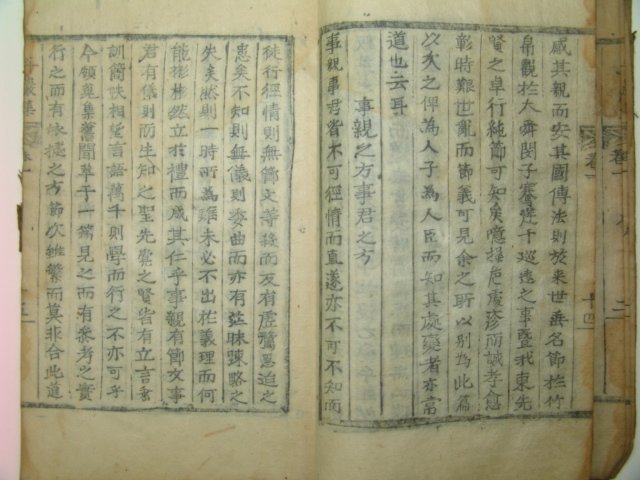 咸其親而安其國傳法則於來世垂名節於竹
帛觀於大舜閔子騫逄干巡遠之事曁我東先
賢之卓行純節可知矣噫操危慮疹而誠孝愈
彰時艱世亂而節義可見余之所以別為此篇
以次之俾為人子為人臣而知其處變者亦當
道也云耳
事親之方事君之方
事親事君皆不可徑情而直遂亦不可不知而
徒行徑情則無節文等殺而反有虛驚恩迫之
患矣不知則無儀則委曲而亦有茫昧踈略之
失矣然則一時所為雖未必不出於義理而何
能彬彬然立於禮而咸其仁乎事親有節文事
君有儀則而生知之聖先覺之賢皆有立言垂
訓簡佚相連言語萬千則學而行之不亦可乎
今集舊聞草于一篇見之而有參考之實
行之而有依據之方節次雖繁而莫非合此道